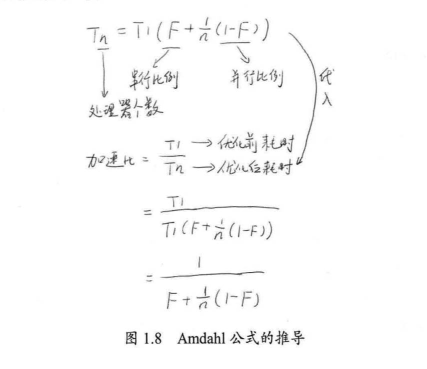 Tn = T1(F + 1/n(1-F))
串行比例 并行比例 代入
处理器个数
加速比 = T1/Tn → 优化前耗时
→ 优化后耗时
= T1 / T1(F + 1/n(1-F))
= 1 / F + 1/n(1-F)
图 1.8 Amdahl 公式的推导